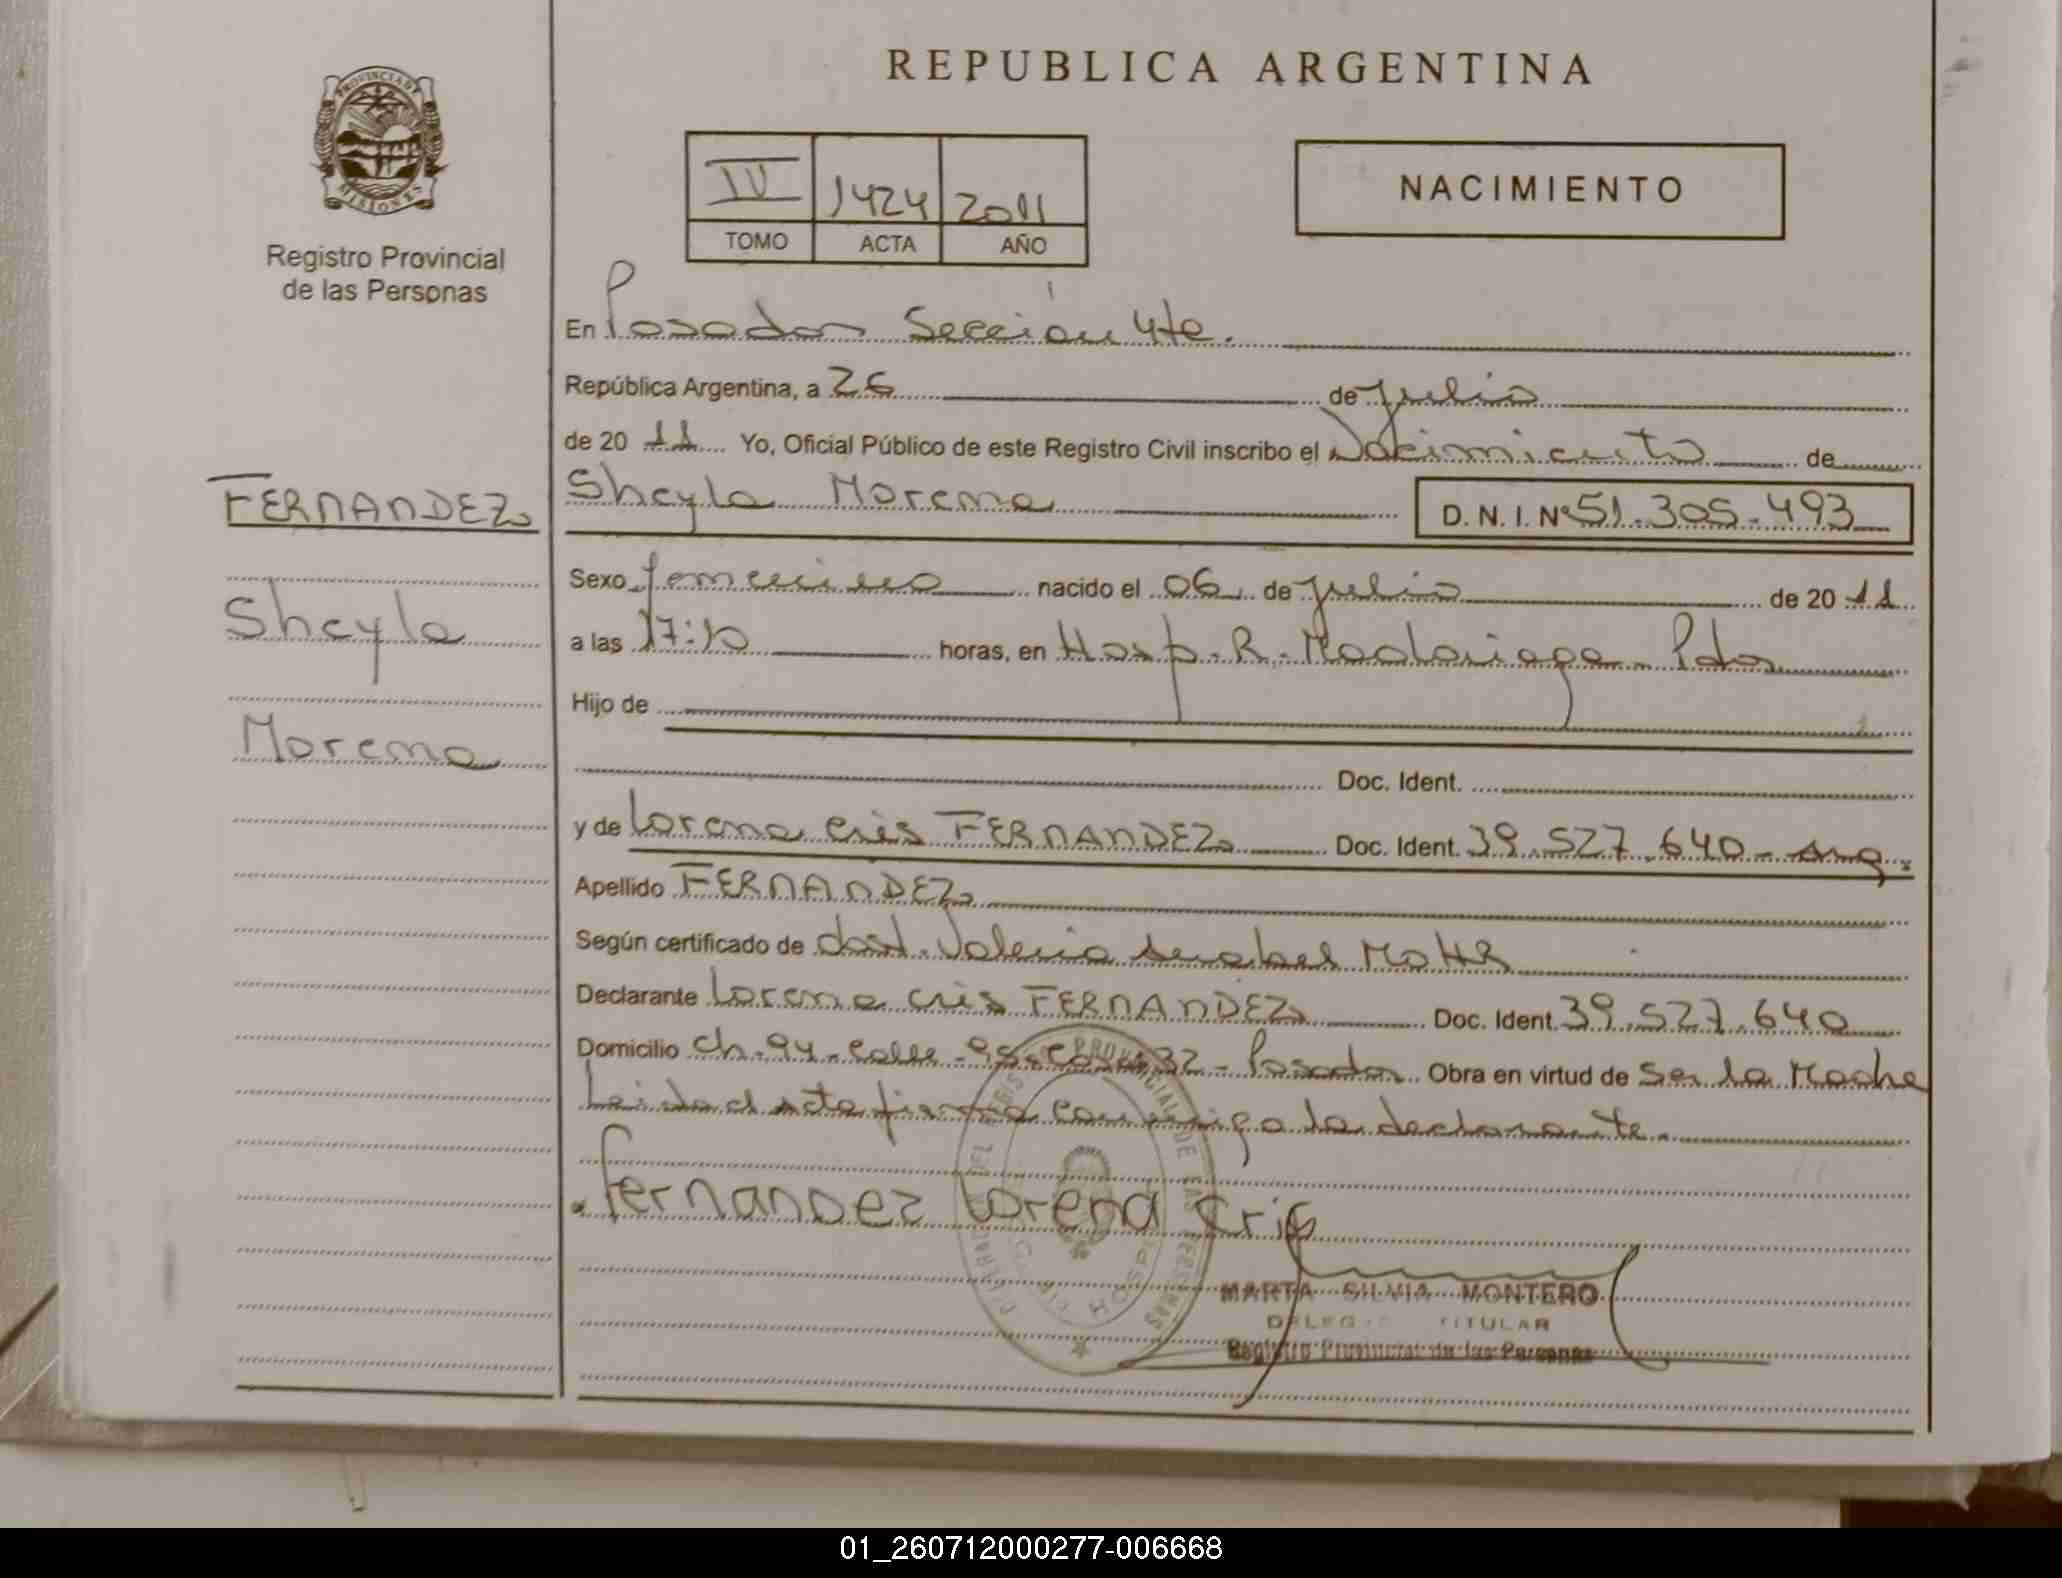 REPUBLICA ARGENTINA
PROVINCIA DE MISIONES
Registro Provincial
de las Personas
IV 1424 2011
TOMO ACTA AÑO
NACIMIENTO
En Posadas Sección 4ta.
República Argentina, a 26 de julio
de 2011 Yo, Oficial Público de este Registro Civil inscribo el Nacimiento de
FERNANDEZ
Sheyla Morena D. N. I. Nº 51.305.493
Sexo femenino nacido el 06 de julio de 2011
Sheyla
a las 17:10 horas, en Hosp. R. Madariaga - Pdas
Hijo de
Morena
Doc. Ident.
y de Lorena Cris FERNANDEZ Doc. Ident. 39.527.640 - Arg.
Apellido FERNANDEZ
Según certificado de Valeria Anabel MOHR
Declarante Lorena Cris FERNANDEZ Doc. Ident. 39.527.640
Domicilio Ch. 94 - Calle - 95 - Casa 32 - Posadas Obra en virtud de Ser la Madre
Leida el acta firma conmigo la declarante.
Fernandez Lorena Cris
MARTA SILVIA MONTERO
TITULAR
Registro Provincial de las Personas
01_260712000277-006668